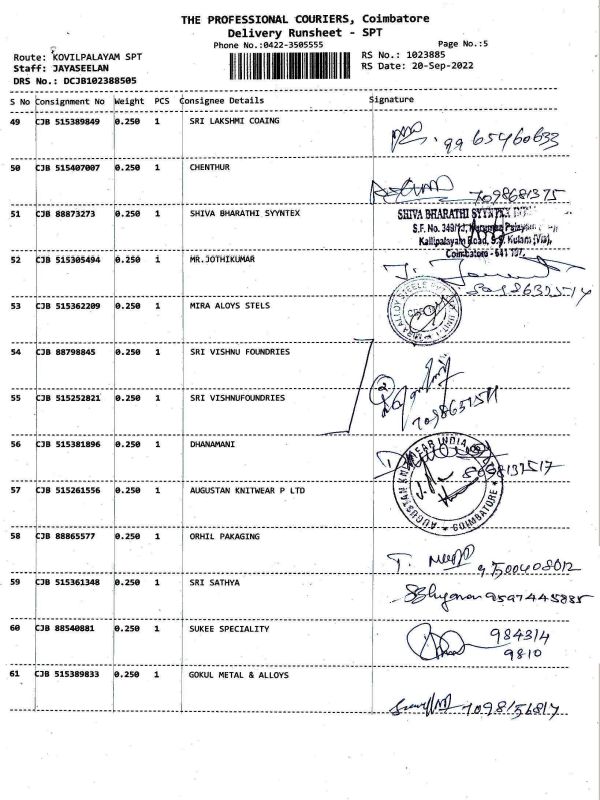 THE PROFESSIONAL COURIERS, Coimbatore
Delivery Runsheet - SPT
Phone No.:0422-3505555 Page No.:5
Route: KOVILPALAYAM SPT RS No.: 1023885
Staff: JAYASEELAN RS Date: 20-Sep-2022
DRS No.: DCJB102388505
S No Consignment No Weight PCS Consignee Details Signature
49 CJB 515389849 0.250 1 SRI LAKSHMI COAING
9965460633
50 CJB 515407007 0.250 1 CHENTHUR
7098681375
51 CJB 88873273 0.250 1 SHIVA BHARATHI SYYNTEX
SHIVA BHARATHI SYYNTEX
S.F. No. 349/1J,
Kallipalayam Road, S.S. Kulam (Via),
Coimbatore - 641 107.
52 CJB 515305494 0.250 1 MR.JOTHIKUMAR
53 CJB 515362209 0.250 1 MIRA ALOYS STELS
54 CJB 88798845 0.250 1 SRI VISHNU FOUNDRIES
2
55 CJB 515252821 0.250 1 SRI VISHNUFOUNDRIES
56 CJB 515381896 0.250 1 DHANAMANI
57 CJB 515261556 0.250 1 AUGUSTAN KNITWEAR P LTD
AUGUSTAN KNITWEAR INDIA COIMBATORE
58 CJB 88865577 0.250 1 ORHIL PAKAGING
9500408012
59 CJB 515361348 0.250 1 SRI SATHYA
9597445885
60 CJB 88540881 0.250 1 SUKEE SPECIALITY
984314
9810
61 CJB 515389833 0.250 1 GOKUL METAL & ALLOYS
7098156817